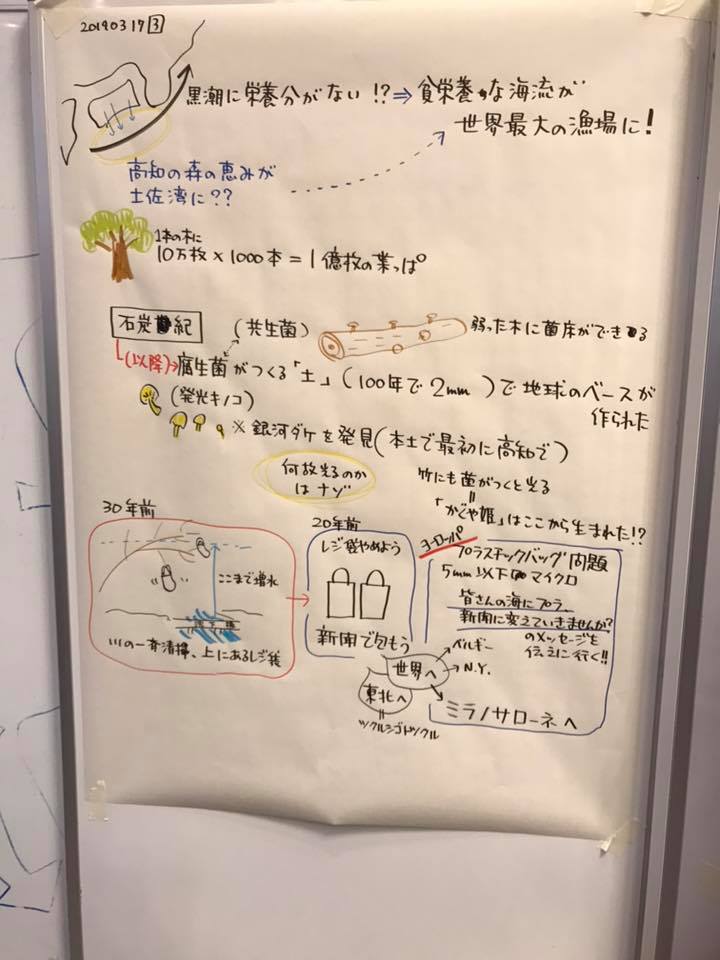 20190317 3
黒潮に栄養分がない!?⇒貧栄養な海流が
世界最大の漁場に!
高知の森の恵みが
土佐湾に??
1本の木に
10万枚×1000本=1億枚の葉っぱ
石炭紀
(共生菌)
弱った木に菌床ができる
(以降)→腐生菌がつくる「土」(100年で2mm)で地球のベースが
作られた
(発光キノコ)
※銀河ダケを発見(本土で最初に高知で)
何故光るのか
はナゾ
竹にも菌がつくと光る
「かぐや姫」はここから生まれた!?
30年前
ここまで増水
川の一斉清掃、上にあるレジ袋
20年前
レジ袋やめよう
新聞で包もう
ヨーロッパ
プラスチックバッグ問題
5mm以下マイクロ
皆さんの海にプラ
新聞に変えていきませんか?
のメッセージを
伝えに行く!!
世界へ
ベルギー
N.Y.
ミラノサローネへ
東北へ
ツクルシゴトツクル